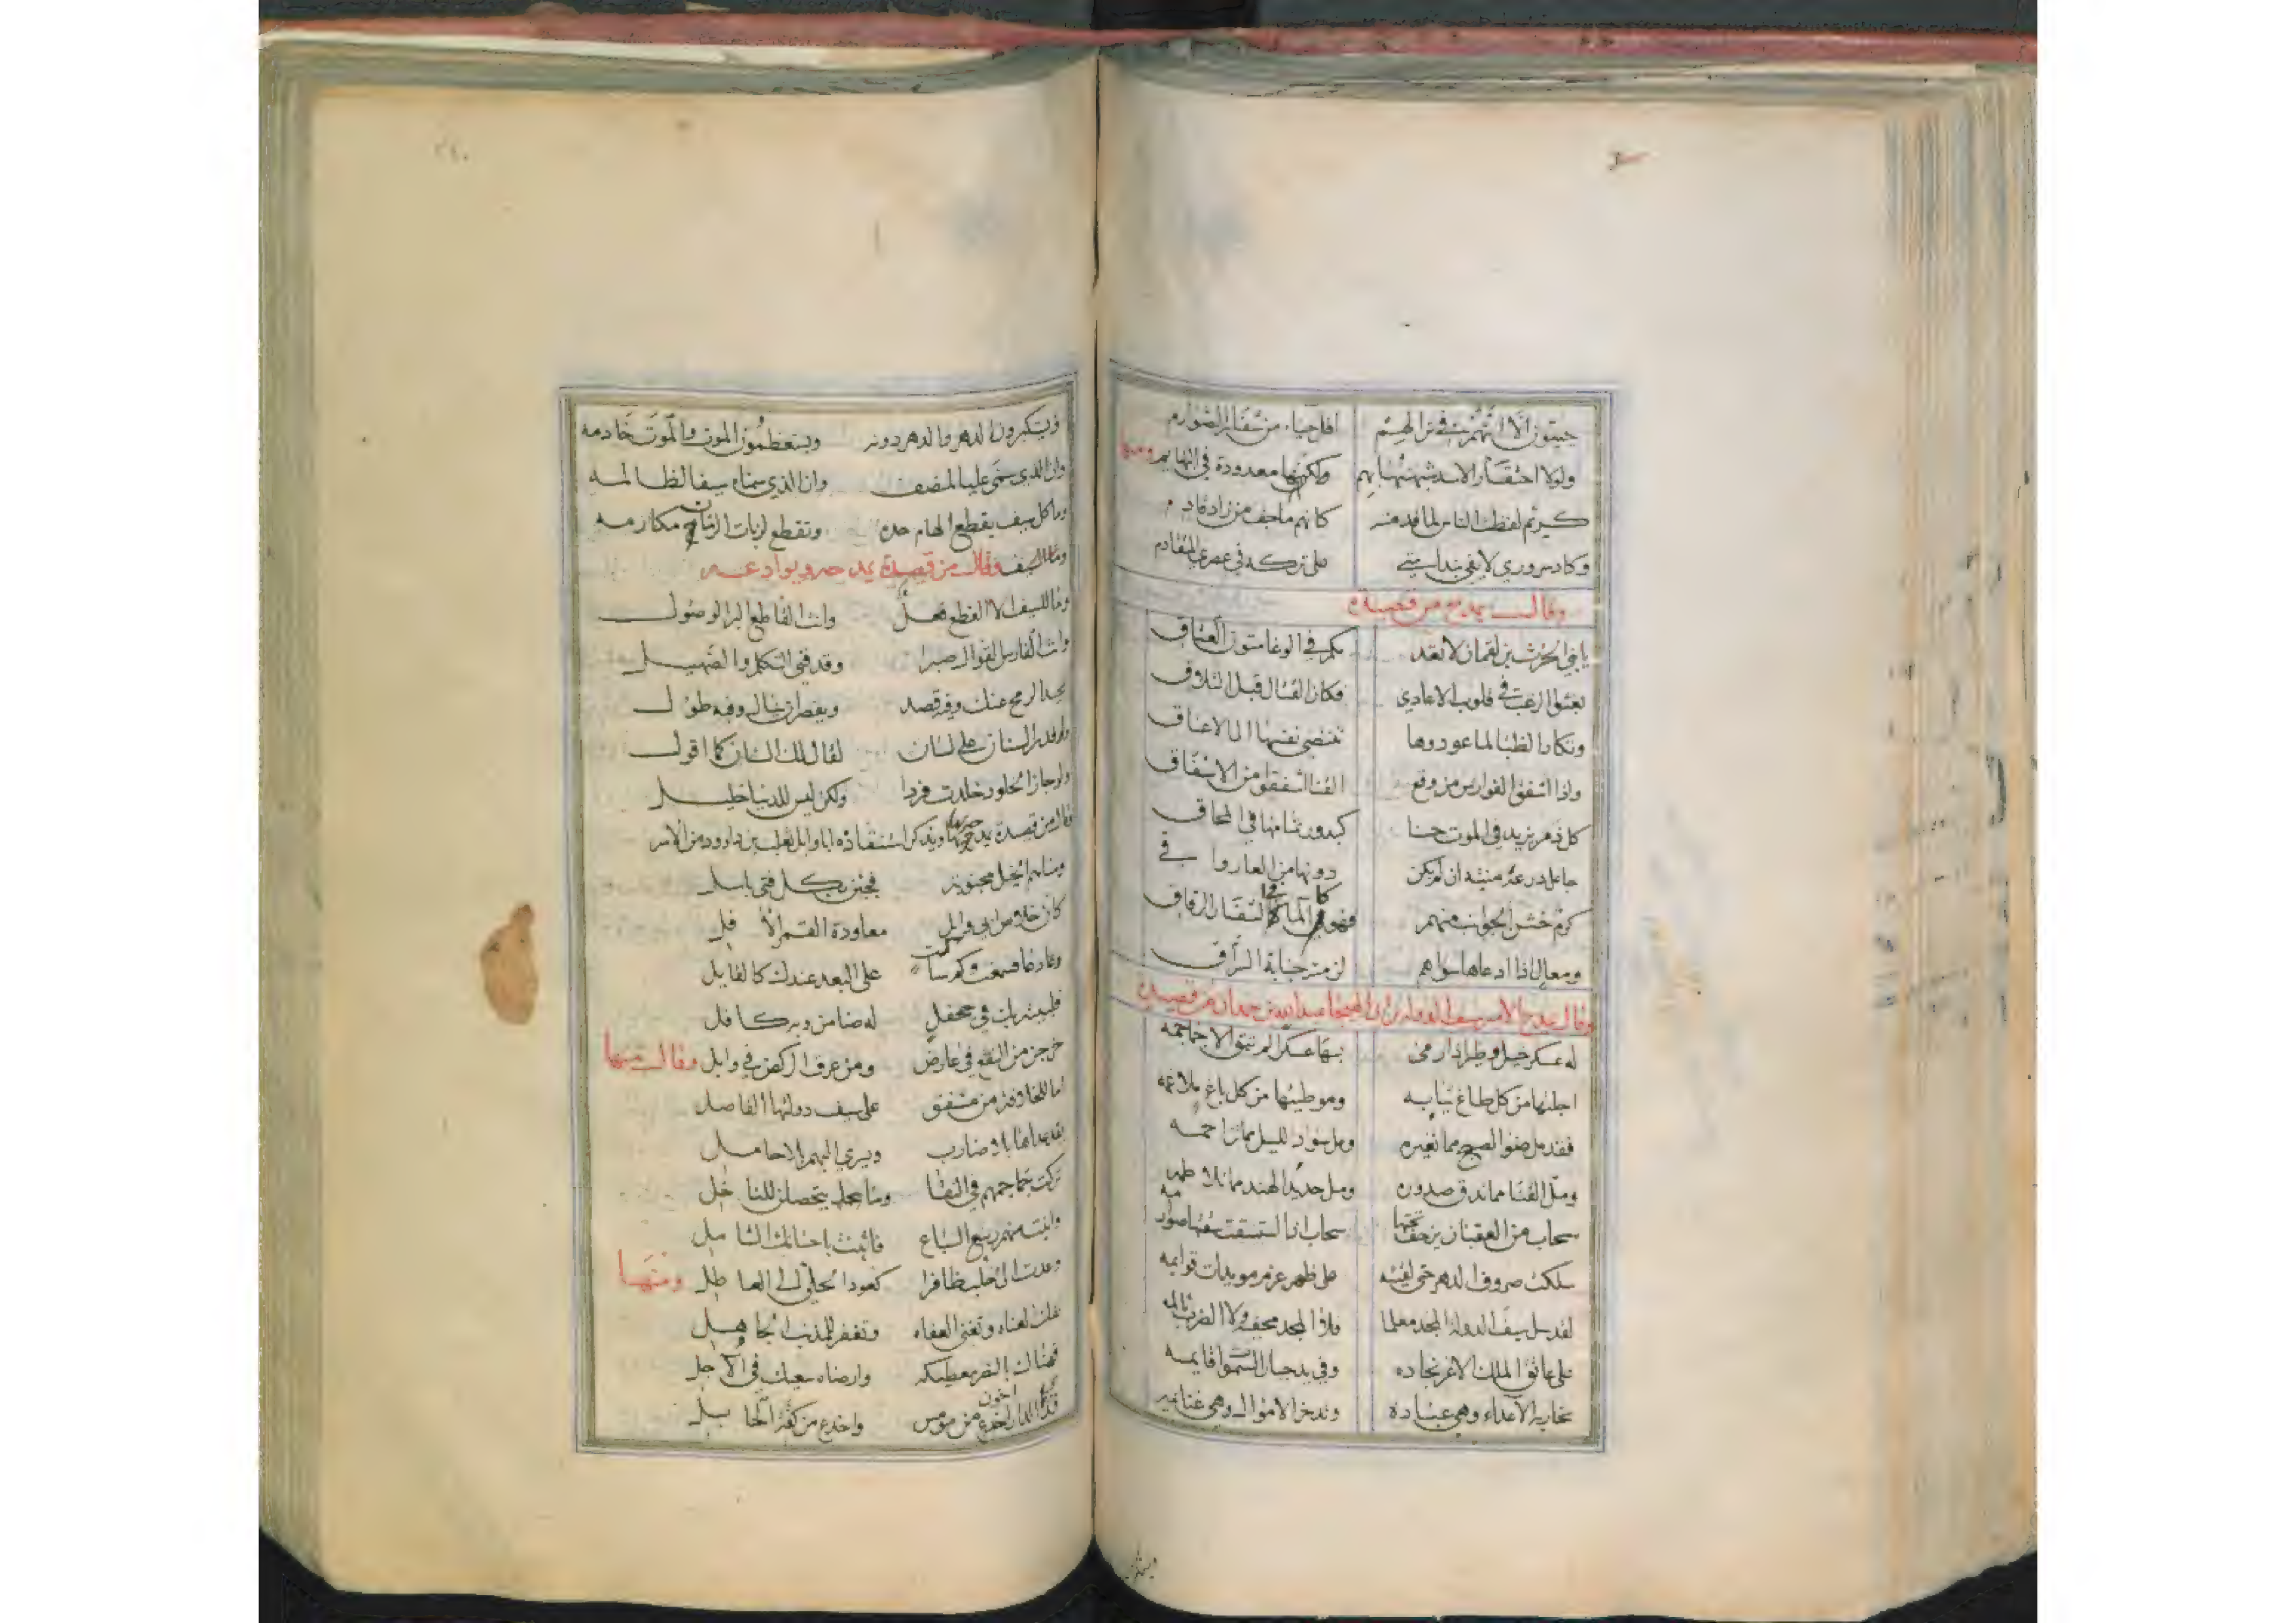 حييون الا انهم في نزالهم اقل حياء من شفار الصوارم
ولولا احتقار الاسد شبهتها بهم ولكنها معدودة في البهايم ومنها
كريم لفظت الناس لما بلغته كانهم ما جف من زاد قادم
وكاد سروري لا يفي بندامتي على تركه في عمري المتقادم
وقال يمدح من قصيدة
يا بني الحرث بن لقمان لا تعدمكم في الوغا متون العتاق
بعثوا الرعب في قلوب الاعادي فكان القتال قبل التلاقي
وتكاد الظبا لما عودوها تنتضي نفسها الى الاعناق
واذا اشفق الفوارس من وقع القنا اشفقوا من الاشفاق
كل ذمر يزيد في الموت حسنا كبدور تمامها في المحاق
جاعل درعه منيته ان لم يكن دونها من العار واقي
كرم خشن الجوانب منهم فهو كالماء في الشفار الرقاق
ومعال اذا ادعاها سواهم لزمته جناية السراق
وقال يمدح الامير سيف الدولة بن ابي الهيجا عبد الله بن حمدان من قصيدة
له عسكر خيل وطير اذا رمى بها عسكرا لم تبق الا جماجمه
اجلتها من كل طاغ ثيابه وموطئها من كل باغ ملاغمه
فقد مل ضوء الصبح مما تغيره ومل سواد الليل مما تزاحمه
ومل القنا مما تدق صدوره ومل حديد الهند مما تلاطمه
سحاب من العقبان يزحف تحتها سحاب اذا استسقت سقتها صوارمه
سلكت صروف الدهر حتى لقيته على ظهر عزم مويدات قوايمه
لقد سل سيف الدولة المجد معلما فلا المجد مخفيه ولا الضرب ثالمه
على عاتق الملك الاغر نجاده وفي يد جبار السموات قايمه
تحاربه الاعداء وهي عباده وتدخر الاموال وهي غنايمه
ويستكبرون
ويستكبرون الدهر والدهر دونه ويستعظمون الموت والموت خادمه
وان الذي سمى عليا لمنصف وان الذي سماه سيفا لظالمه
وما كل سيف يقطع الهام حده وتقطع لزبات الزمان مكارمه
وقال من قصيدة يمدحه ويوادعه
وما للسيف الا القطع فعل وانت القاطع البر الوصول
وانت الفارس القوال صبرا وقد فني التكلم والصهيل
يحيد الرمح عنك وفيه قصد ويقصر ان ينال وفيه طول
ولو قدر السنان على لسان لقال لك السنان كما اقول
ولو جاز الخلود خلدت فردا ولكن ليس للدنيا خليل
قال من قصيدة يمدحه بها ويذكر استنقاذه ابا وايل تغلب بن داوود من الاسر
ومنا بهم الخيل مجنونة فجئن بكل فتى باسل
كان خلاص ابي وايل معاودة القمر الافل
دعا فسمعت وكم ساكت على البعد عندك كالقايل
فلبيته بك في جحفل له ضامن وبه كافل
خرجن من النقع في عارض ومن عرق الركض في وابل وقال منها
اما للخلافة من مشفق على سيف دولتها الفاصل
يقد عداها بلا ضارب ويسري اليهم بلا حامل
تركت جماجمهم في النقا وما يتحصلن للناخل
وانبت منهم ربيع السباع فاثنت باحسانك الشامل
وعدت الى حلب ظافرا كعود الحلي الى العاطل ومنها
تفك العناة وتغني العفاة وتغفر للمذنب الجاهل
فهناك بالنصر معطيكه وارضاه سعيك في الاجل
فذي الدار اخون من مومس واخدع من كفة الحابل